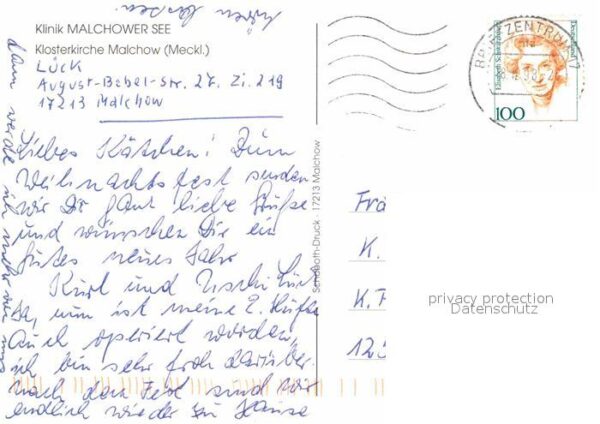 Klinik MALCHOWER SEE
Klosterkirche Malchow (Meckl.)
LÜCK
August-Bebel-Str. 27. Zi. 219
17213 Malchow
Liebes Kätchen! Zum
Weihnachtsfest senden
wir Dir ganz liebe Grüße
und wünschen Dir ein
gutes neues Jahr
Kurt und Uschi Lück
Ja, nun ist meine 2. Hüfte
auch operiert worden,
ich bin sehr froh darüber.
nach dem Fest sind wir
endlich wieder zu Hause
dann werde ich mehr von uns
hören lassen.
Schöllkopf-Druck · 17213 Malchow
BRIEFZENTRUM 17
Deutsche Bundespost
100
Frä
K.
K.F
123
privacy protection
Datenschutz